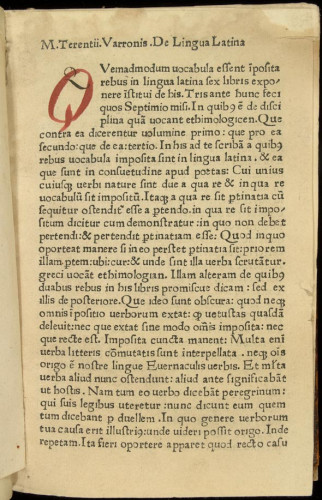 M. Terentii. Varronis. De Lingua Latina
QVemadmodum uocabula essent īposita
rebus in lingua latina sex libris expo-
nere īstitui de his. Tris ante hunc feci
quos Septimio misi. In quibꝰ ē de disci
plina quā uocant ethimologicen. Que
contra ea dicerentur uolumine primo: que pro ea
secundo: que de ea: tertio. In his ad te scribā a quibꝰ
rebus uocabula imposita sint in lingua latina. & ea
que sunt in consuetudine apud poetas: Cui unius
cuiusqꝫ uerbi nature sint due a qua re & in qua re
uocabulū sit impositū. Itaqꝫ a qua re sit ptinatia cū
sequitur ostendit esse a ptendo. in qua re sit impo-
situm dicitur cum demonstratur: in quo non debet
pertendi: & pertendit ptinatiam esse: Quod in quo
oporteat manere si in eo perstet ptinatia sit: priorem
illam ptem: ubi: cur: & unde sint illa uerba scrutātur.
greci uocāt ethimologian. Illam alteram de quibꝰ
duabus rebus in his libris promiscue dicam: sed ex
illis de posteriore. Que ideo sunt obscura: quod neqꝫ
omnis īpositio uerborum extat: qꝫ uetustas quasdā
deleuit: nec que extat sine modo om̄is imposita: nec
que recte est. Imposita cuncta manent: Multa eni
uerba litteris cōmutatis sunt interpellata. neqꝫ oīs
origo ē nostre lingue Euernaculis uerbis. Et mīta
uerba aliud nunc ostendunt: aliud ante significabāt
ut hostis. Nam tum eo uerbo dicebāt peregrinum:
qui suis legibus uteretur: nunc dicunt eum quem
tum dicebant p duellem. In quo genere uerborum
tua causa erit illustriꝰ: unde uideri possit origo. Inde
repetam. Ita fieri oportere apparet quod recto casu